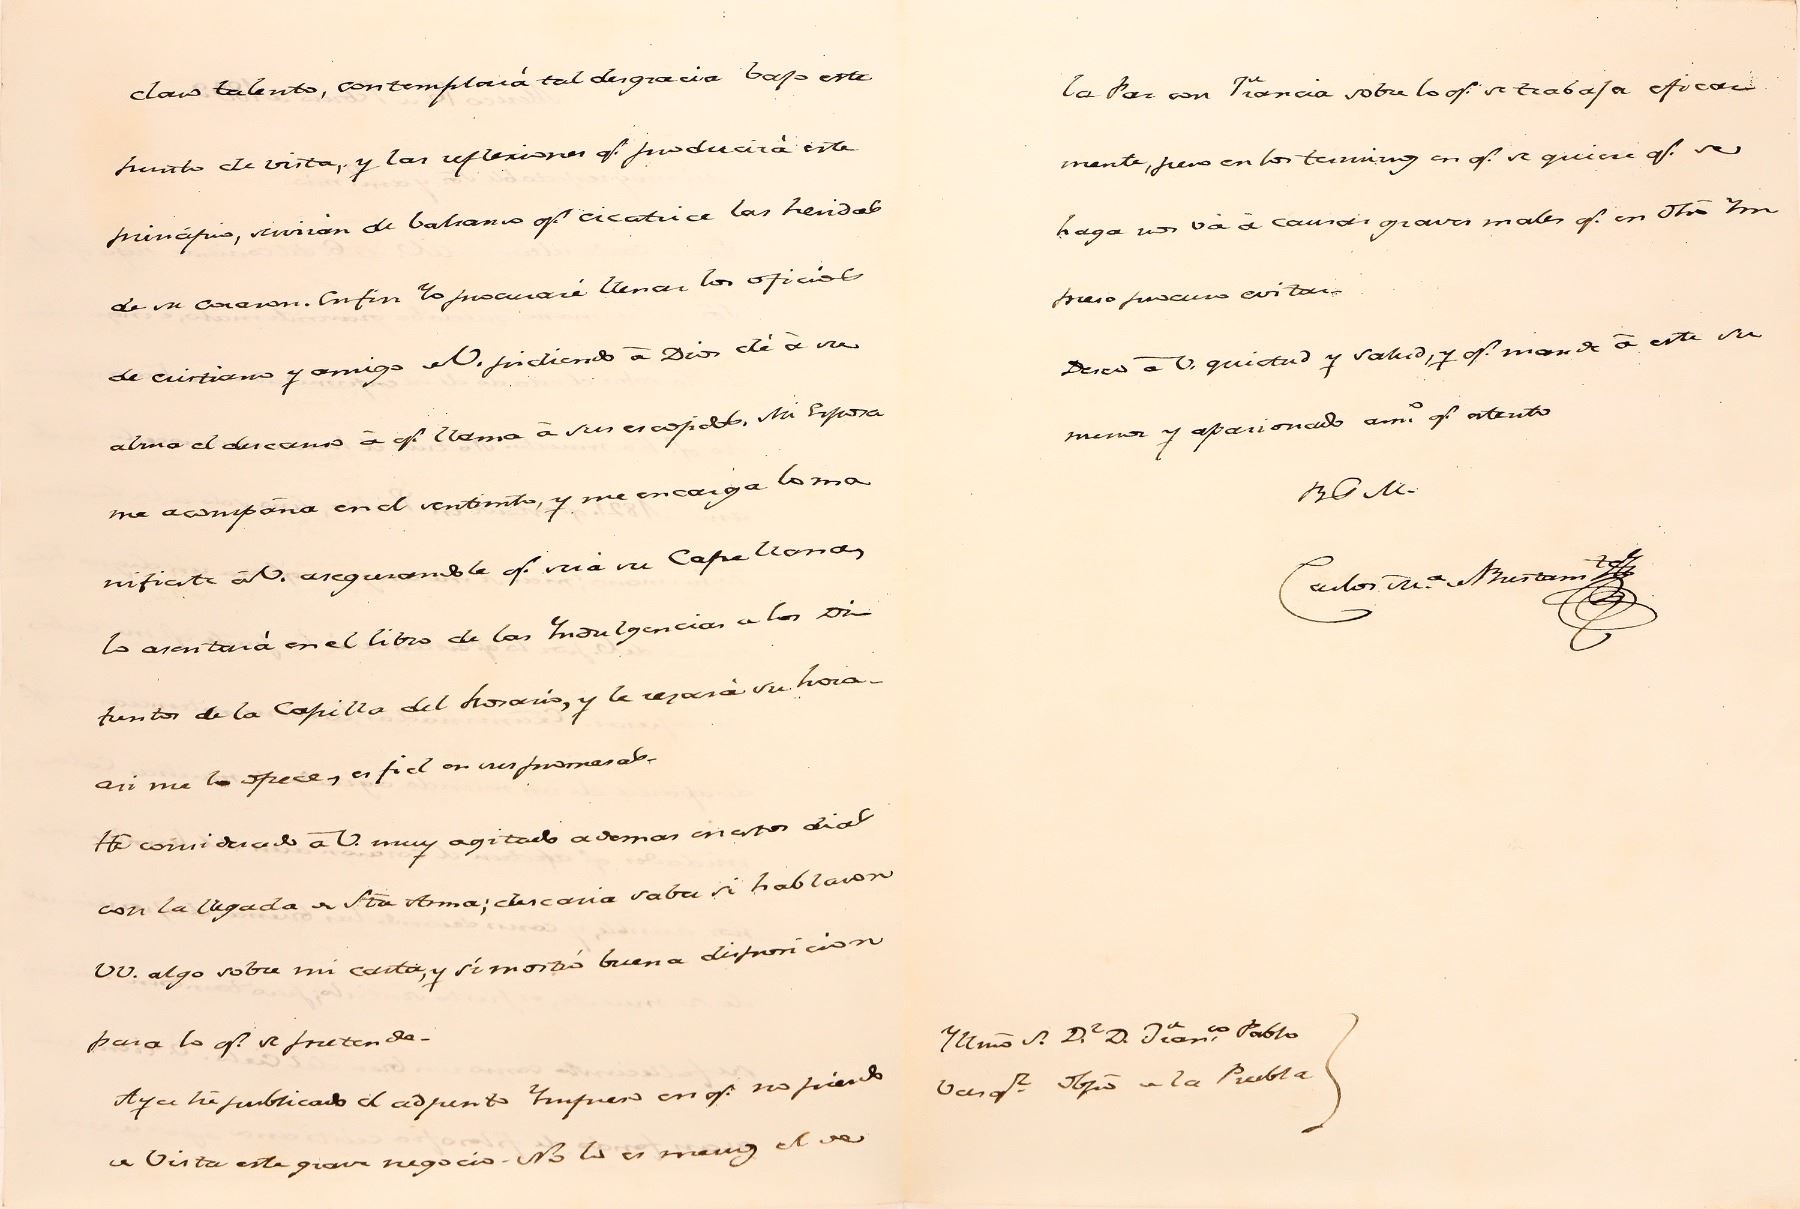 claro talento, contemplará tal desgracia bajo este
punto de vista, y las reflexiones q.e producirá este
principio, servirán de balsamo q.e cicatrice las heridas
de su corazon. En fin Yo procuraré llenar los oficios
de cristiano y amigo de V. pidiendo â Dios dé â su
alma el descanso â q.e llama â sus escojidos. Mi Esposa
me acompâña en el sentimto, y me encarga lo ma
nifieste âV. asegurandole q.e será su Capellana,
lo asentará en el libro de las Yndulgencias a los Di
funtos de la Capilla del Rosario, y le rezará su hora-
asi me lo ofrece, es fiel en sus promesas-
Hé considerado â V. muy agitado ademas en estos dias
con la llegada de Stâ Anna; desearia saber si hablaron
VV. algo sobre mi carta, y si mostró buena disposicion
para lo q.e se pretende-
Ayer hé publicado el adjunto Ympreso en q.e no pierdo
de Vista este grave negocio- No lo es menos el de
la Paz con Francia sobre lo q.e se trabaja eficaz-
mente, pero en los terminos en q.e se quiere q.e se
haga nos vá â causar graves males q.e en Otrô Ym
preso procuro evitar-
Deseo â V. quietud y salud, y q.e mande â este su
menor y apasionado am.o q.e atento
B S M.
Carlos M.a de Bustamte
Yllmô S. D.r D. Fran.co Pablo
Vasq.z Obpô de la Puebla